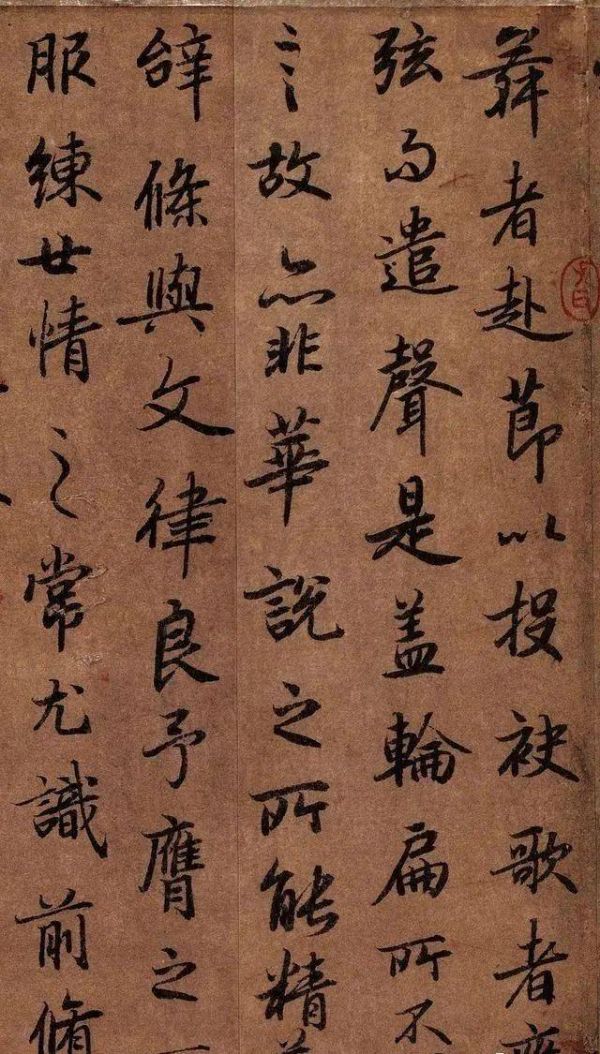 舞者赴節以投袂歌者
弦而遣聲是盖輪扁所不
言故亦非華說之所能精
辭條與文律良予膺之
服練世情之常尤識前脩